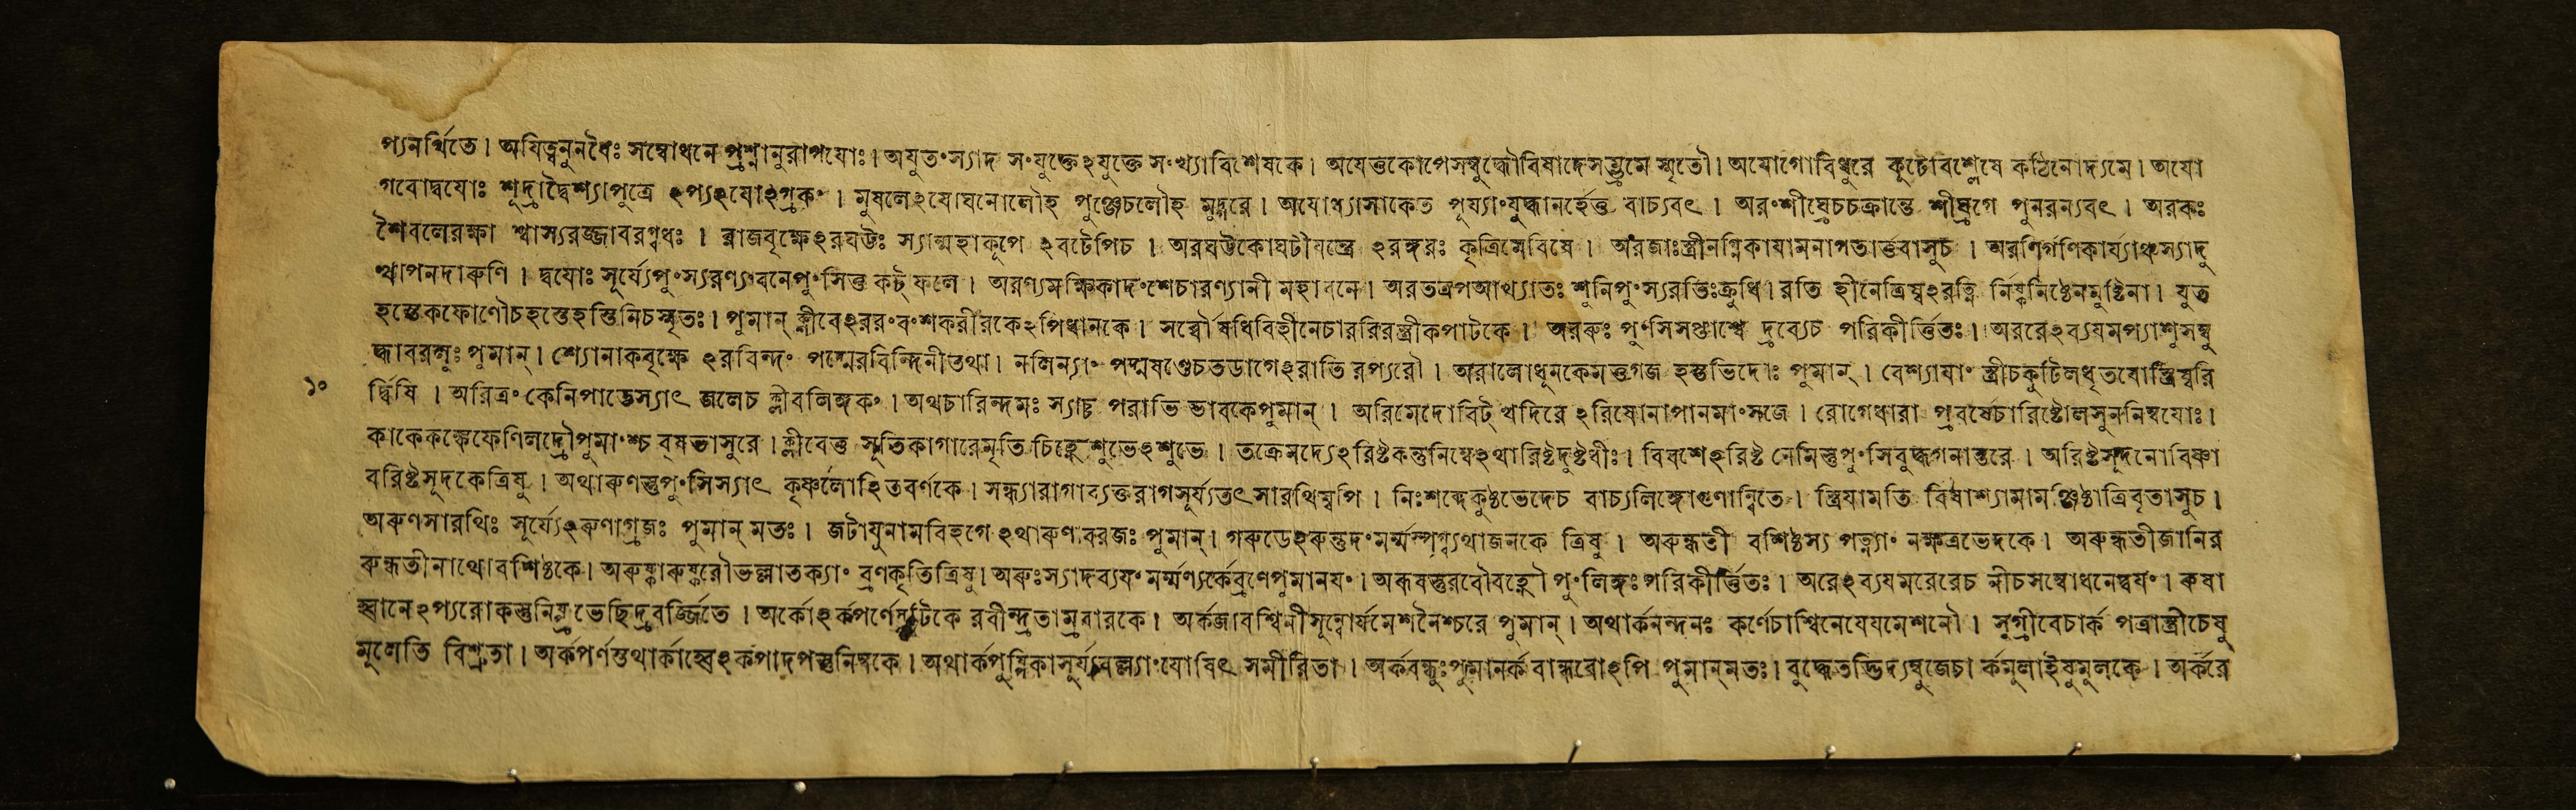 প্যনর্থিতে। অযিত্বনুনধৈঃ সম্বোধনে প্রশ্নানুরাগযোঃ। অযুতং স্যাদ সংযুক্তেঽযুক্তে সংখ্যাবিশেষকে। অযেত্তকোপেসম্বুদ্ধৌবিষাদেসম্ভ্রমে স্মৃতৌ। অযোগোবিধুরে কূটোবিশ্লেষে কঠিনোদ্যমে। অযো
গবোদ্বযোঃ শূদ্রাদ্বৈশ্যাপুত্রে ঽপ্যঽযোঽগ্রকং । মুষলেঽযোঘনোলৌহ পুঞ্জেচলৌহ মুদ্গরে। অযোধ্যাসাকেত পূয্যাংযুদ্ধানর্হেত্ত বাচ্যবৎ । অরংশীঘ্রেচচক্রান্তে শীঘ্রগে পুনরন্যবৎ । অরকঃ
শৈবলেরক্ষা শ্বাস্যরজ্জাবরগ্বধঃ । রাজবৃক্ষেঽরঘউঃ স্যান্মহাকূপে ঽবটেপিচ । অরঘউকোঘটীযন্ত্রে ঽরঙ্গরঃ কৃত্রিমেবিষে । অরজাঃস্ত্রীনগ্নিকাযামনাগতার্ত্তবাসুচ । অরণির্গণিকার্য্যাঞ্চস্যাদু
ত্থাপনদারুণি । দ্বযোঃ সূর্য্যেপুংস্যরণ্যংবনেপুংসিত্ত কট্ফলে । অরণ্যমক্ষিকাদংশেচারণ্যানী মহাবনে। অরতত্রপআখ্যাতঃ শুনিপুংস্যরতিঃক্রুধি। রতি হীনেত্রিষ্বঽরত্নি র্নিষ্কনিষ্ঠেনমুষ্টিনা। যুত
হস্তেকফোণৌচহস্তেহস্তিনিচস্মৃতঃ। পুমান্ ক্লীবেঽররংবংশকরীরকেঽপিধানকে। সর্ব্বৌষধিবিহীনেচাররিরস্ত্রীকপাটকে। অররুঃ পুংসিসপ্তাশ্বে দ্রব্যেচ পরিকীর্ত্তিতঃ। অররেঽব্যযমপ্যাশুসম্বু
দ্ধাবরলুঃ পুমান্। শ্যোনাকবৃক্ষে ঽরবিন্দং পদ্মেরবিন্দিনীতথা। নলিন্যাং পদ্মষণ্ডেচতডাগেঽরাতি রপ্যরৌ। অরালোধূনকেমত্তগজ হস্তভিদোঃ পুমান্। বেশ্যাযাং স্ত্রীচকুটিলধৃতযোস্ত্রিষ্বরি
১০ র্দ্বিষি । অরিত্রং কেনিপাতেস্যাৎ জলেচ ক্লীবলিঙ্গকং। অথচারিন্দমঃ স্যাচ্চ পরাভি ভাবকেপুমান্। অরিমেদোবিট্ খদিরে ঽরিষোনাপানমাংসজে। রোগেধারা প্রবর্ষেচারিষ্টোলসুননিম্বযোঃ।
কাকেকঙ্কেফেণিলদ্রৌপুমাংশ্চ বৃষভাসুরে। ক্লীবেত্ত সূতিকাগারেমৃতি চিহ্নেশুভেঽশুভে। তক্রেমদ্যেঽরিষ্টকন্তুনিম্বেঽথারিষ্টদুষ্টধীঃ। বিবশেঽরিষ্ট নেমিস্তুপুংসিবুদ্ধগনান্তরে। অরিষ্টসূদনোবিষ্ণা
বরিষ্টসূদকেত্রিষু। অথারুণস্তুপুংসিস্যাৎ কৃষ্ণলোহিতবর্ণকে। সন্ধ্যারাগাব্যক্তরাগসূর্য্যতৎ সারথিষ্বপি। নিঃশব্দেকুষ্ঠভেদেচ বাচ্যলিঙ্গোগুণান্বিতে। স্ত্রিযামতি বিষাশ্যামামঞ্জিষ্ঠাত্রিবৃতাসুচ।
অরুণসারথিঃ সূর্য্যেঽরুণাগ্রজঃ পুমান্ মতঃ। জটাযুনামবিহগেঽথারুণাবরজঃ পুমান্। গরুডেঽরুন্তুদংমর্ম্মস্পৃগ্ব্যথাজনকে ত্রিষু। অরুন্ধতী বশিষ্ঠস্য পত্ন্যাং নক্ষত্রভেদকে। অরুন্ধতীজানির
রুন্ধতীনাথোবশিষ্ঠকে। অরুষ্কারুষ্করৌভল্লাতক্যাং ব্রণকৃতিত্রিষু। অরুঃস্যাদব্যযং মর্ম্মণ্যর্কেব্রণেপুমানযং। অরূষস্তুরবৌবহ্নৌ পুংলিঙ্গঃপরিকীর্ত্তিতঃ। অরেঽব্যযমরেরেচ নীচসম্বোধনেদ্বযং। রুষা
হ্বানেঽপ্যরোকস্তুনিষ্প্রভেছিদ্রবর্জ্জিতে। অর্কোঽর্কপর্ণেস্ফটিকে রবীন্দ্রতাম্রবারকে। অর্কজাবশ্বিনীসূন্বোর্যমেশনৈশ্চরে পুমান্। অথার্কনন্দনঃ কর্ণেচাশ্বিনেযেযমেশনৌ। সুগ্রীবেচার্ক পত্রাস্ত্রীচেষু
মূলেতি বিশ্রুতা। অর্কপর্ণস্তথার্কাহ্বেঽর্কপাদপস্তুনিম্বকে। অথার্কপুষ্পিকাসূর্য্যবল্ল্যাংযোষিৎ সমীরিতা। অর্কবন্ধুঃপুমানর্কবান্ধবোঽপি পুমান্মতঃ। বুদ্ধেতদ্ভিদ্যম্বুজেচা র্কমূলাইষুমূলকে। অর্করে